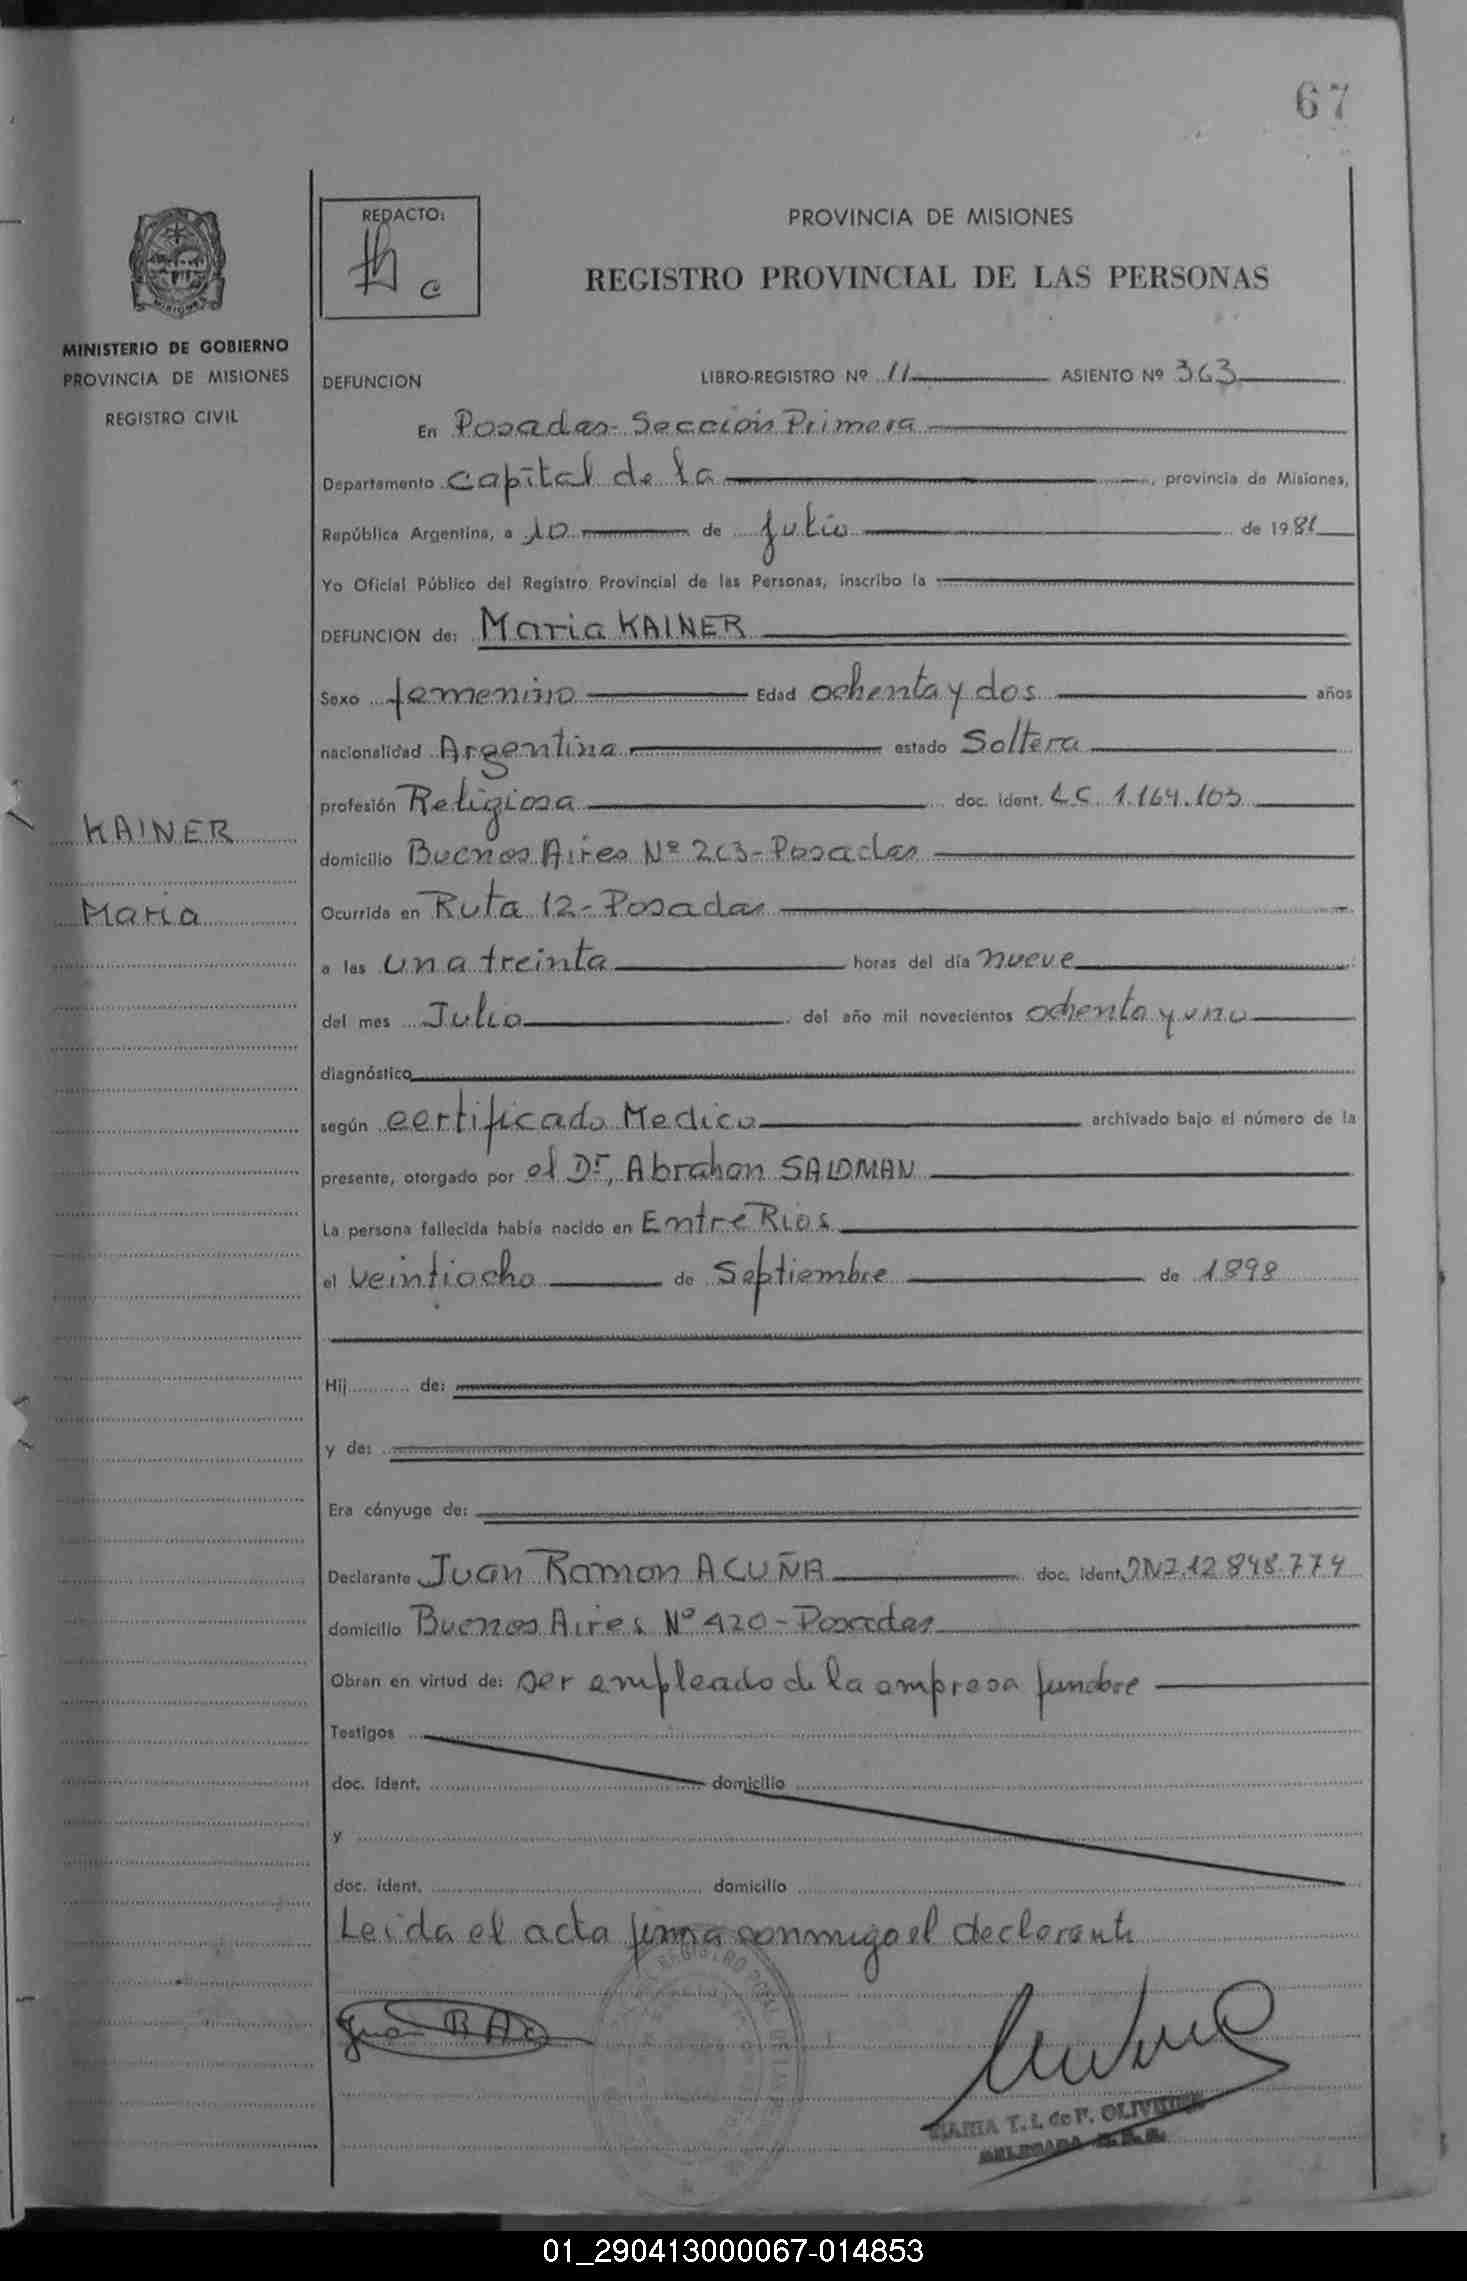 67
REDACTO:
PROVINCIA DE MISIONES
REGISTRO PROVINCIAL DE LAS PERSONAS
MINISTERIO DE GOBIERNO
PROVINCIA DE MISIONES
REGISTRO CIVIL
DEFUNCION LIBRO-REGISTRO Nº 11 ASIENTO Nº 363
En Posadas- Sección Primera
Departamento Capital de la, provincia de Misiones,
República Argentina, a 10 de Julio de 1981
Yo Oficial Público del Registro Provincial de las Personas, inscribo la
DEFUNCION de: Maria KAINER
Sexo femenino Edad ochenta y dos años
nacionalidad Argentina estado Soltera
profesión Religiosa doc. ident. L.C. 1.164.103
KAINER
domicilio Buenos Aires Nº 263- Posadas
Maria
Ocurrida en Ruta 12- Posadas
a las una treinta horas del día nueve
del mes Julio del año mil novecientos ochenta y uno
diagnóstico
según certificado Medico archivado bajo el número de la
presente, otorgado por el Dr, Abrahan SALDMAN
La persona fallecida había nacido en Entre Rios
el veintiocho de Septiembre de 1898
Hij de:
y de:
Era cónyuge de:
Declarante Juan Ramon ACUÑA doc. ident DNI.12.848.774
domicilio Buenos Aires Nº 420- Posadas
Obran en virtud de: ser empleado de la empresa funebre
Testigos
doc. ident. domicilio
y
doc. ident. domicilio
Leida el acta firma conmigo el declarante
MARIA T. I. de F. OLIVEIRA
DELEGADA
01_290413000067-014853